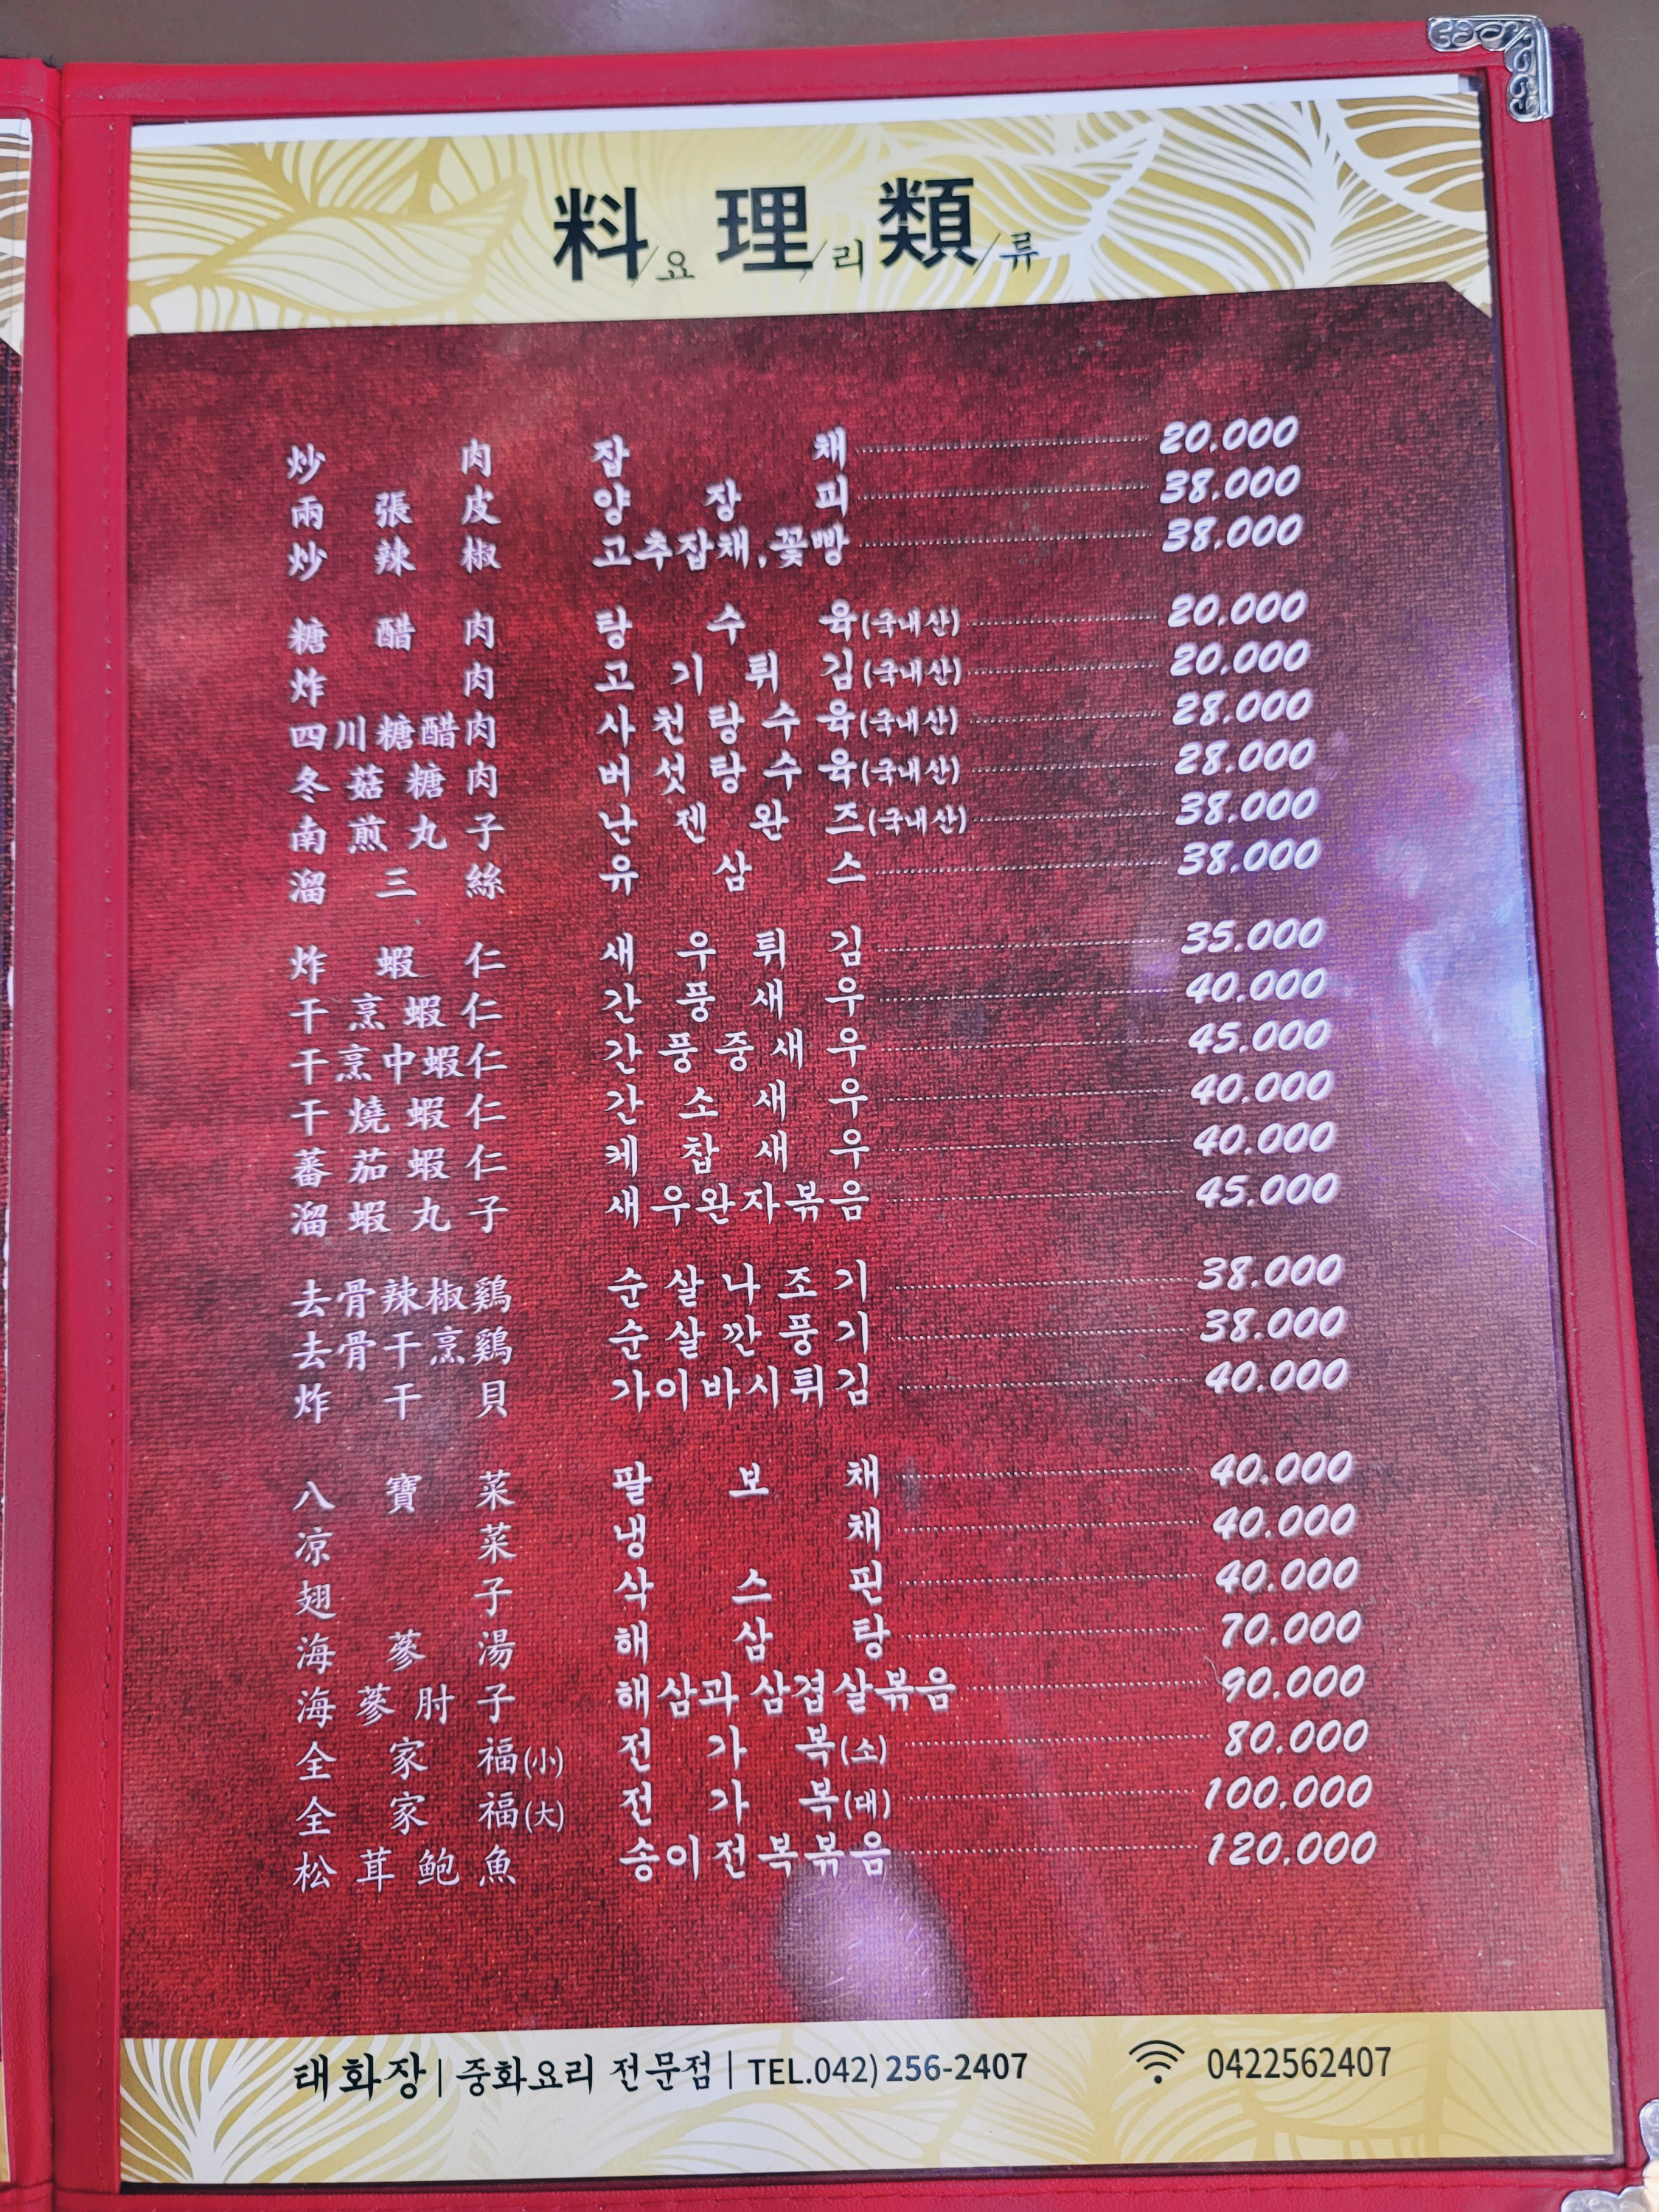 料/요 理/리 類/류
炒肉 잡채 20,000
兩張皮 양장피 38,000
炒辣椒 고추잡채,꽃빵 38,000
糖醋肉 탕수육(국내산) 20,000
炸肉 고기튀김(국내산) 20,000
四川糖醋肉 사천탕수육(국내산) 28,000
冬菇糖肉 버섯탕수육(국내산) 28,000
南煎丸子 난젠완즈(국내산) 38,000
溜三絲 유삼스 38,000
炸蝦仁 새우튀김 35,000
干烹蝦仁 간풍새우 40,000
干烹中蝦仁 간풍중새우 45,000
干燒蝦仁 간소새우 40,000
蕃茄蝦仁 케찹새우 40,000
溜蝦丸子 새우완자볶음 45,000
去骨辣椒鷄 순살나조기 38,000
去骨干烹鷄 순살깐풍기 38,000
炸干貝 가이바시튀김 40,000
八寶菜 팔보채 40,000
凉菜 냉채 40,000
翅子 삭스핀 40,000
海蔘湯 해삼탕 70,000
海蔘肘子 해삼과삼겹살볶음 90,000
全家福(小) 전가복(소) 80,000
全家福(大) 전가복(대) 100,000
松茸鮑魚 송이전복볶음 120,000
태화장 | 중화요리 전문점 | TEL.042) 256-2407 0422562407